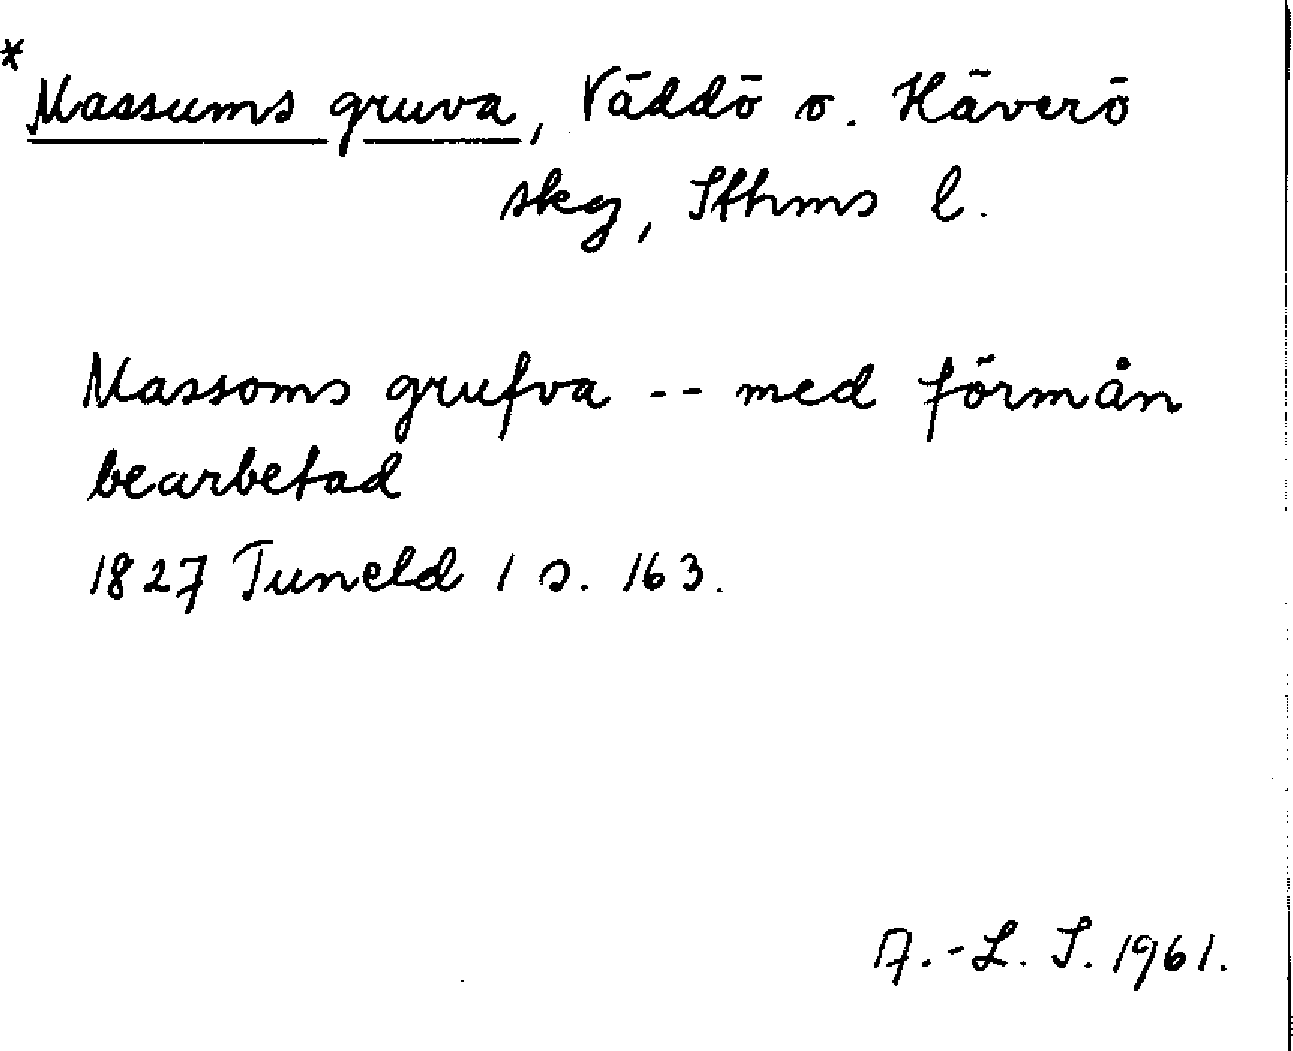 * Massums gruva, Väddö o. Häverö
skg, Sthms l.
Massoms grufva -- med förmån
bearbetad
1827 Tuneld 1 s. 163.
A.-L. S. 1961.